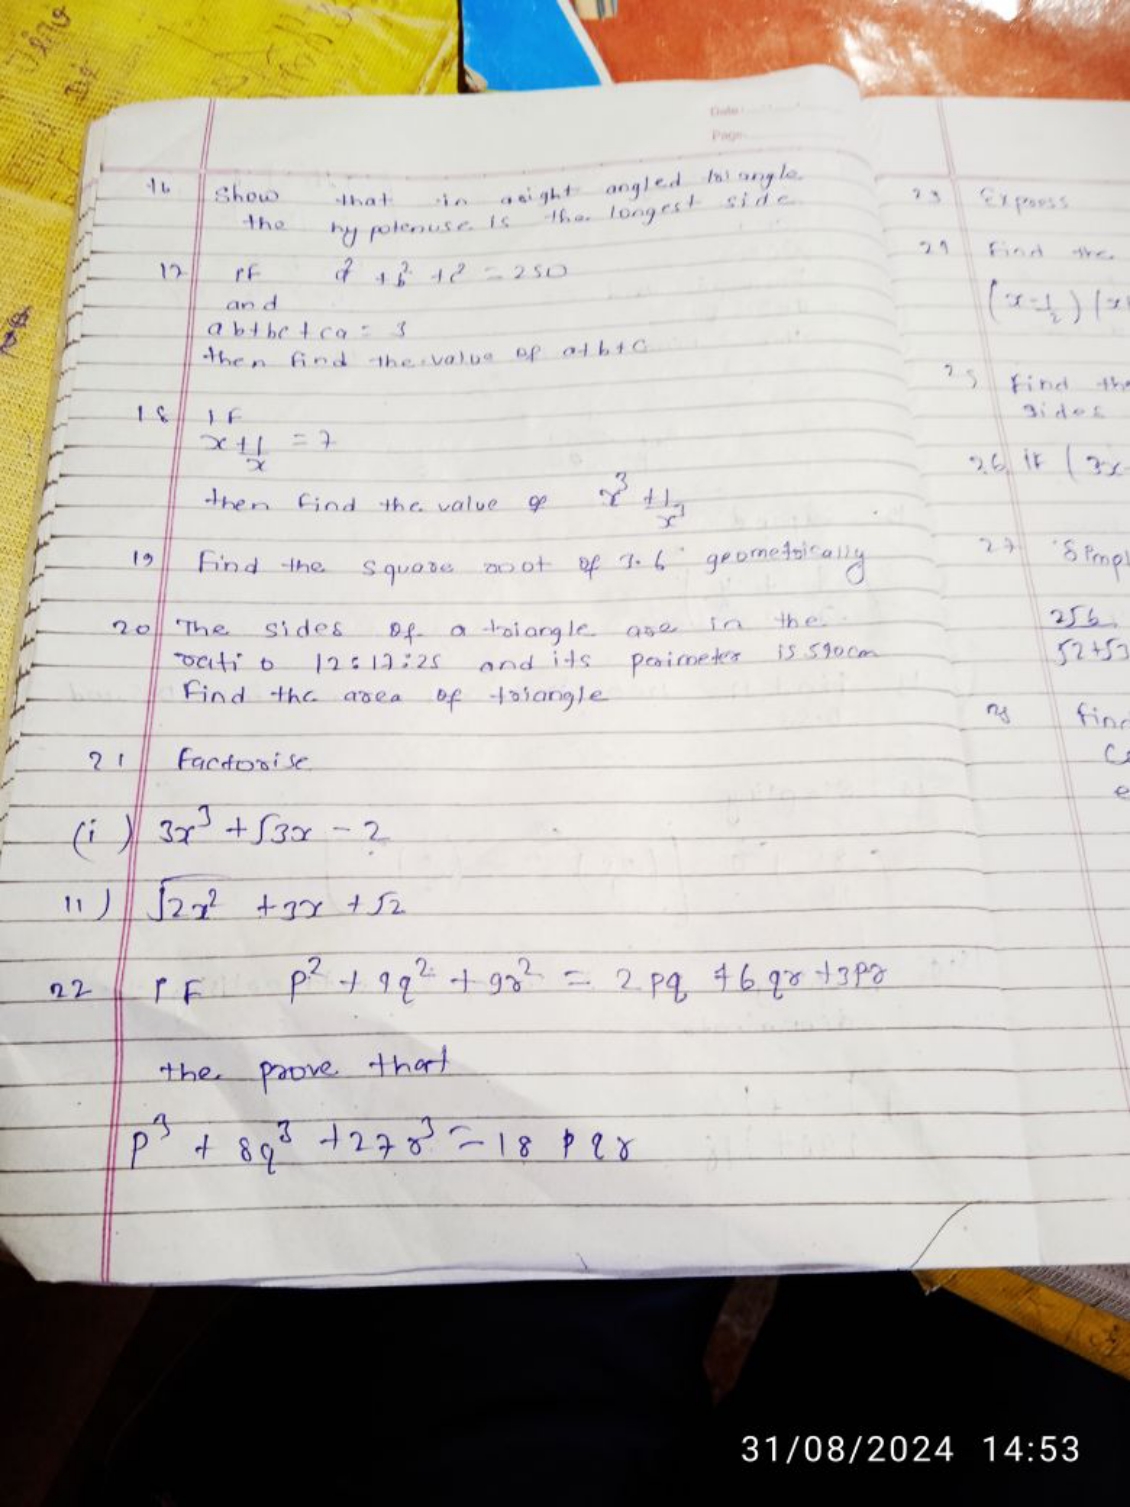 Date:
Page:
16 Show that in a right angled triangle
the hypotenuse is the longest side
17 IF a² + b² + c² = 250
and
ab+bc+ca = 3
then find the value of a+b+c
18 IF
x+1/x = 7
then find the value of x³ + 1/x³
19 Find the square root of 3.6 geometrically
20 The sides of a triangle are in the
ratio 12:17:25 and its perimeter is 590cm
Find the area of triangle
21 Factorise
(i) 3x³ + √3x - 2
11) √2x² + 3x + √2
22 IF p² + 9q² + 9r² = 2pq + 6qr + 3pr
the prove that
p³ + 8q³ + 27r³ = 18 pqr
23 Express
Find the
(x-1/2) (x
25 Find the
sides
26 if (3x
27 Simpl
256
52+53
28 Find
31/08/2024 14:53